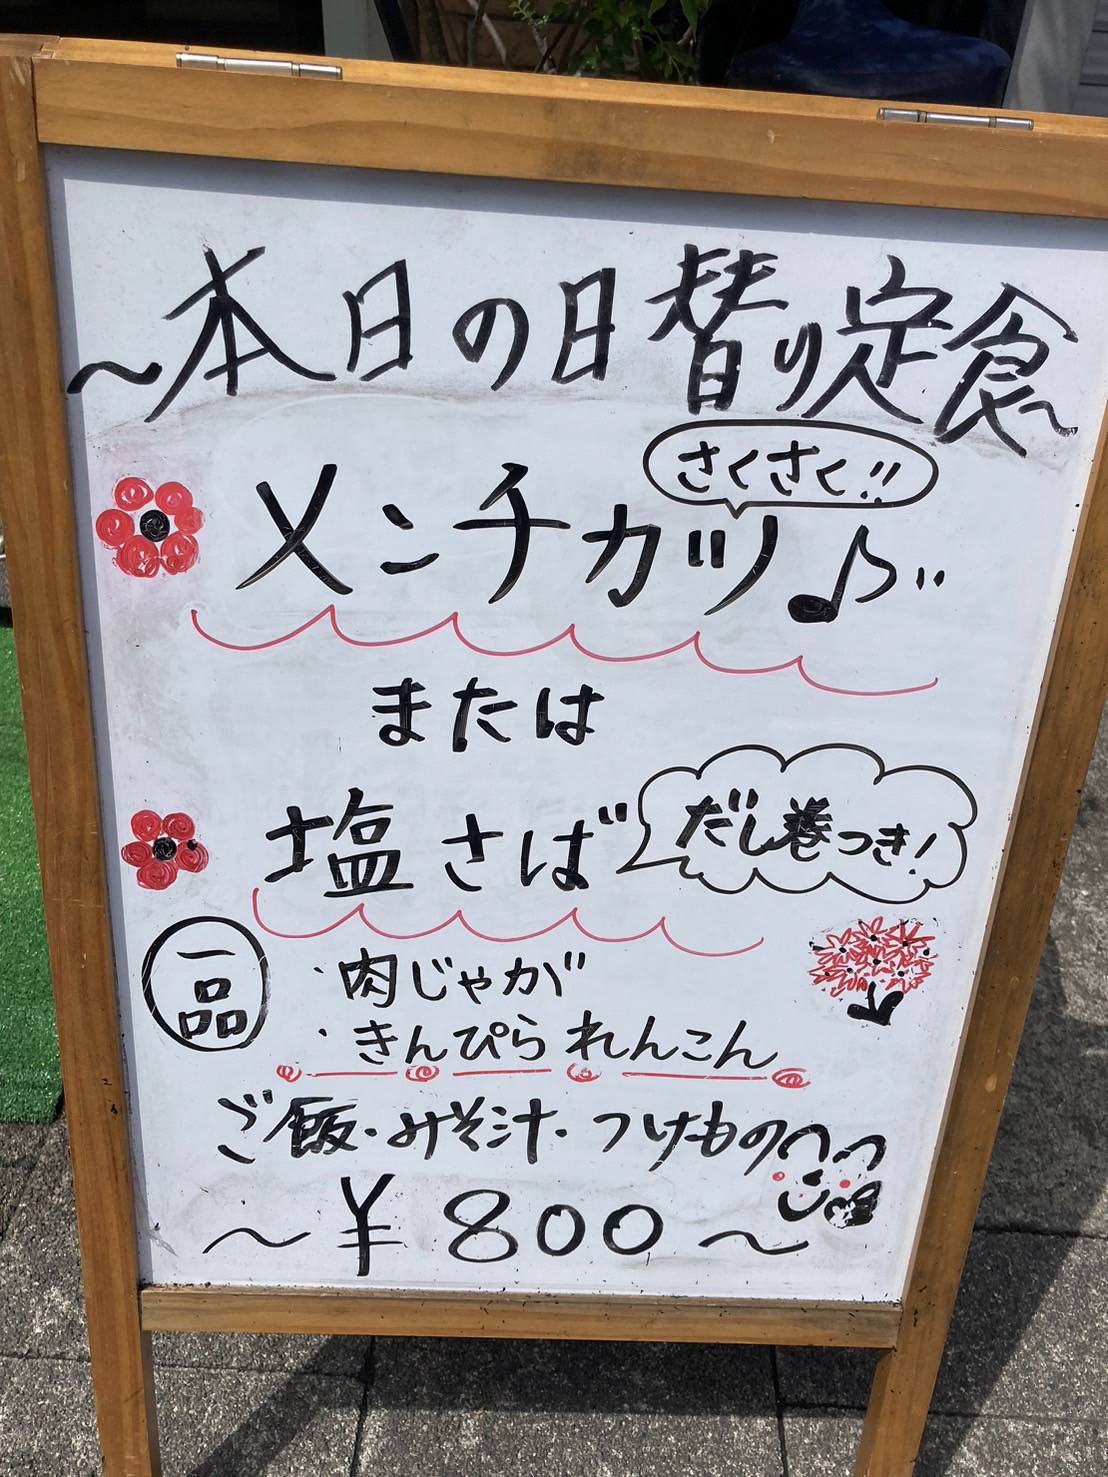 ～本日の日替り定食～
さくさく!!
メンチカツ♪
または
塩さば
だし巻つき!
一品
・肉じゃが
・きんぴられんこん
ご飯・みそ汁・つけもの
～¥800～